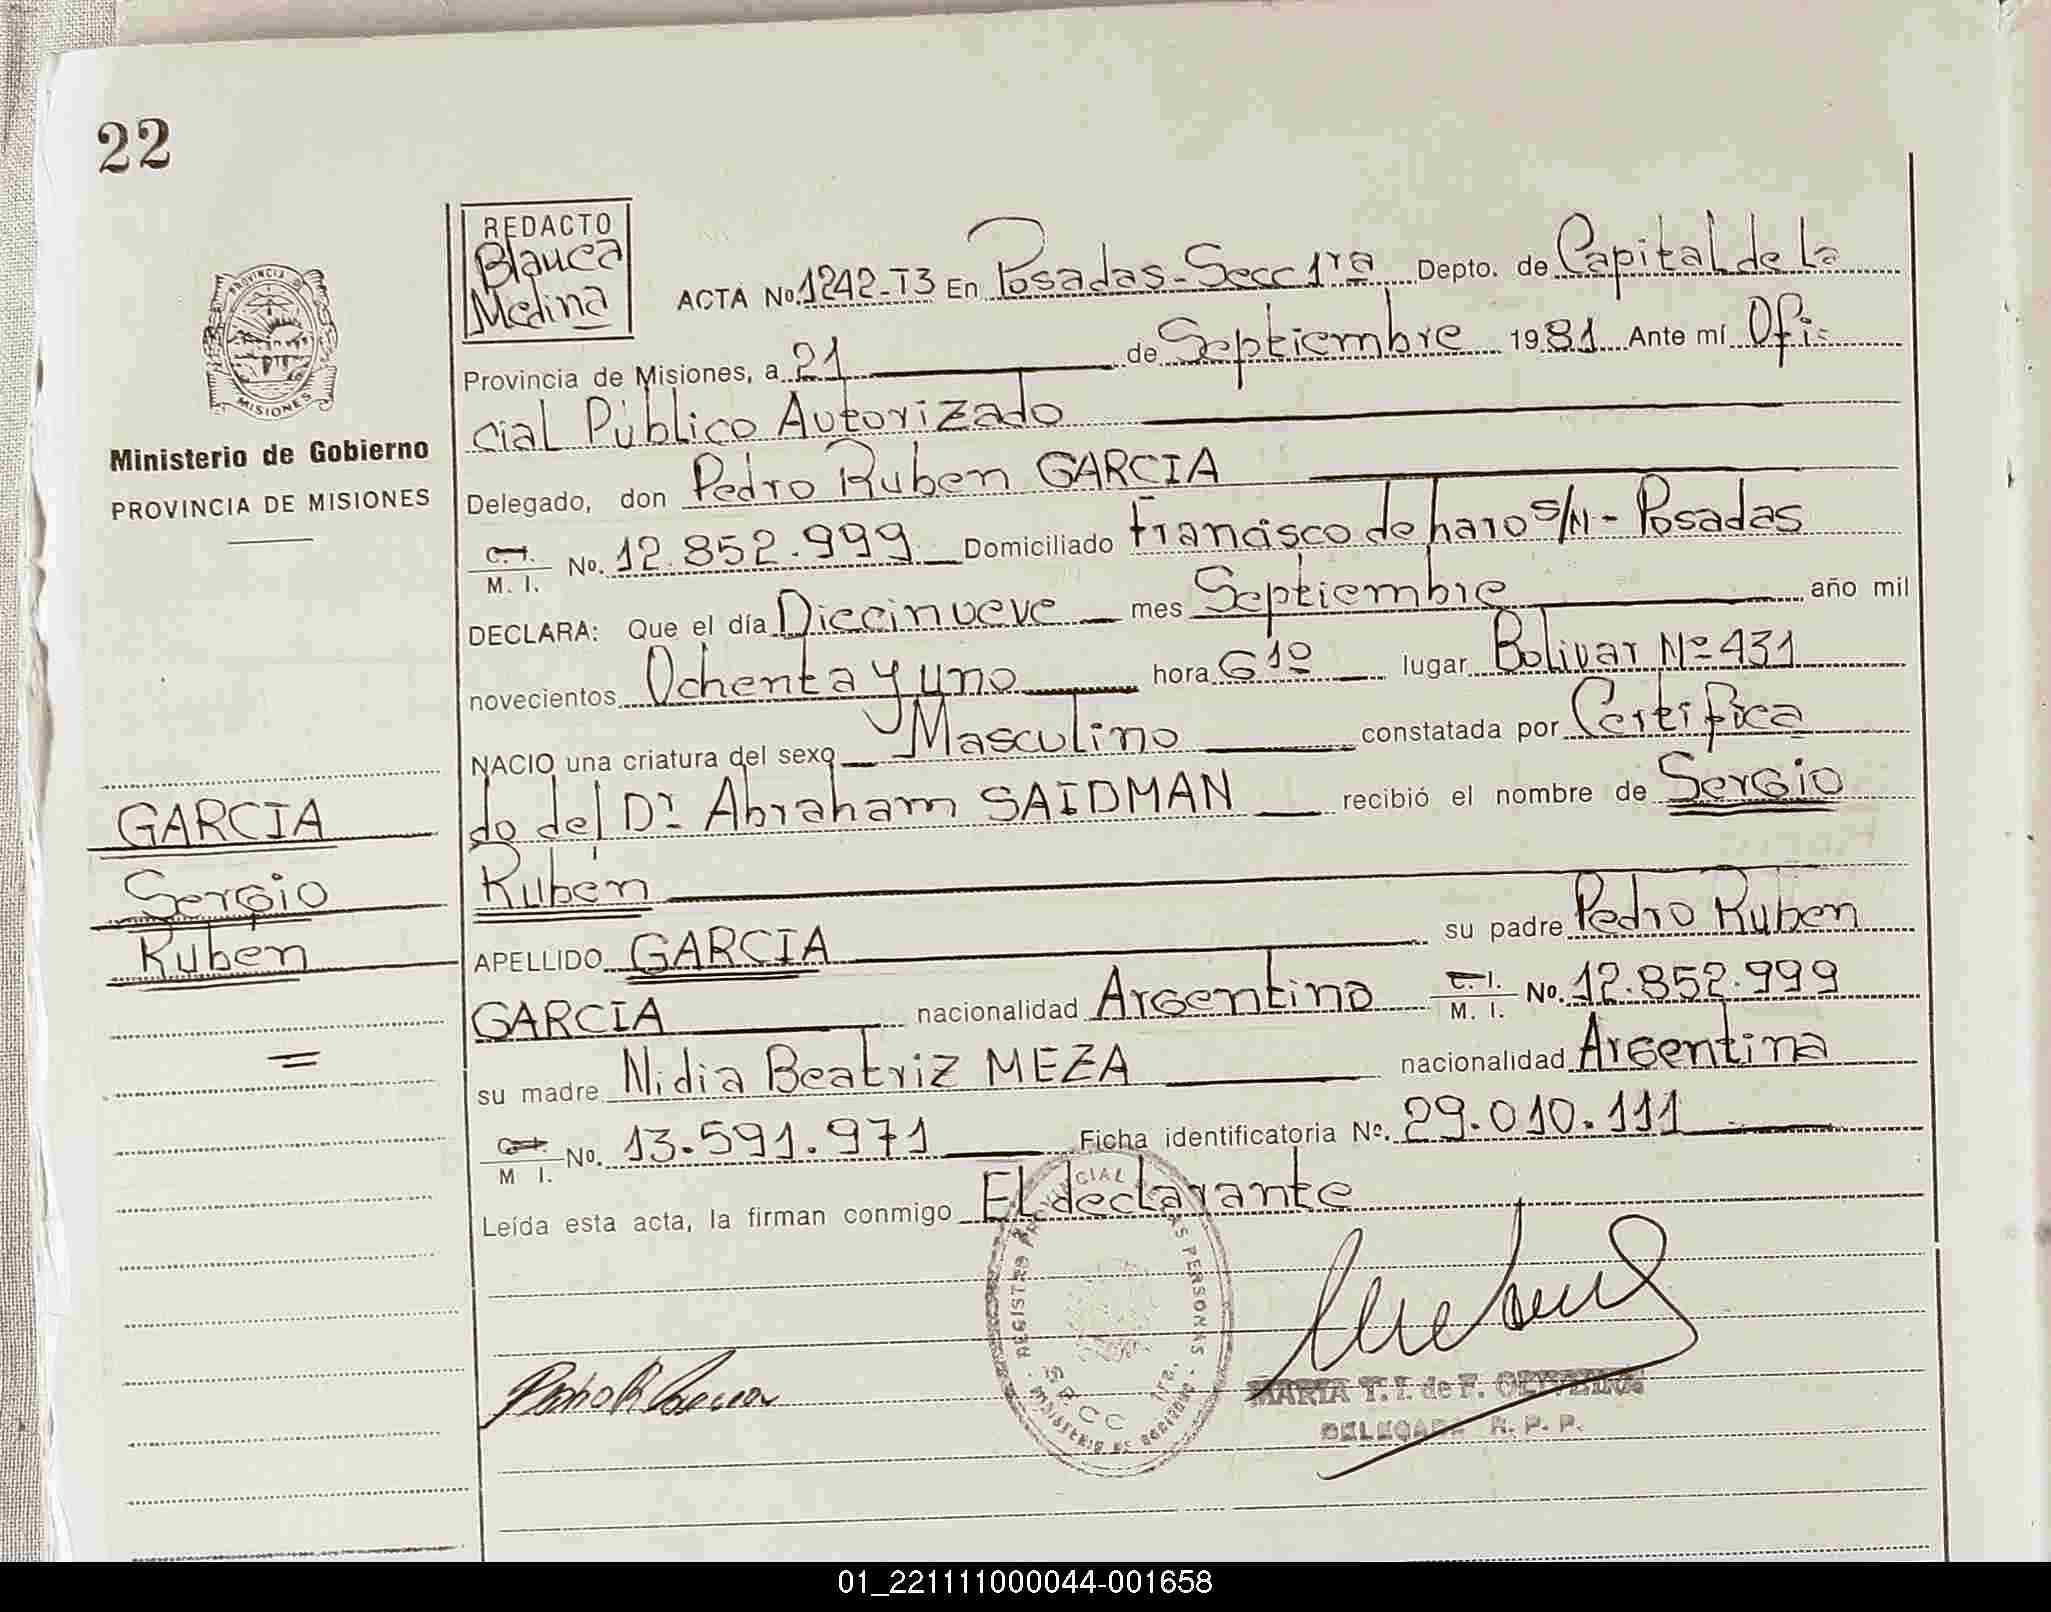 22
REDACTO
Blanca
Medina
PROVINCIA DE
MISIONES
Ministerio de Gobierno
PROVINCIA DE MISIONES
ACTA No. 1242-T3 En Posadas-Secc 1ra Depto. de Capital de la
Provincia de Misiones, a 21 de Septiembre 1981 Ante mí Ofi=
cial Público Autorizado
Delegado, don Pedro Ruben GARCIA
C. I. / M. I. No. 12.852.999 Domiciliado Francisco de haro s/N - Posadas
DECLARA: Que el día Diecinueve mes Septiembre año mil
novecientos Ochenta y uno hora 6 10 lugar Bolivar Nº 431
NACIO una criatura del sexo Masculino constatada por Certifica
do del Dr. Abraham SAIDMAN recibió el nombre de Sergio
Rubén
APELLIDO GARCIA su padre Pedro Ruben
GARCIA nacionalidad Argentino C. I. / M. I. No. 12.852.999
su madre Nidia Beatriz MEZA nacionalidad Argentina
C. I. / M I. No. 13.591.971 Ficha identificatoria No. 29.010.111
Leída esta acta, la firman conmigo El declarante
GARCIA
Sergio
Ruben
=
REGISTRO PROVINCIAL DE LAS PERSONAS
MINISTERIO DE GOBIERNO
Pedro R Garcia
MARIA T. I. de F.
DELEGADA R. P. P.
01_221111000044-001658